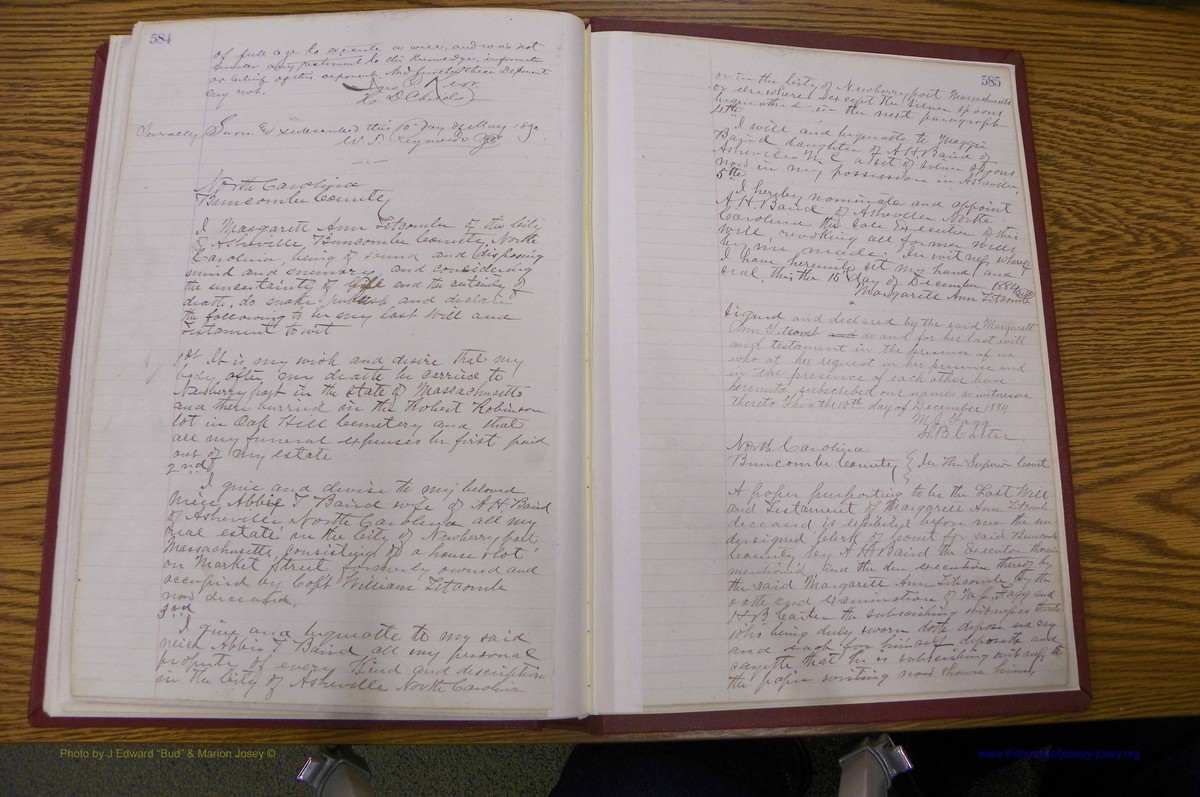 584
of full age to execute a will, and was not
under any restraint to the knowledge, information
or belief of this deponent. And further these Deponent
say not.
L D Childs
Severally Sworn & subscribed this 10 day of May 1890
W. T. Reynolds
North Carolina
Buncombe County
I Margarett Ann Titcombe of the City
of Asheville, Buncombe County, North
Carolina, being of sound and disposing
mind and memory, and considering
the uncertainty of life and the certainty of
death, do make publish and declare
the following to be my last Will and
Testament to wit
1st It is my wish and desire that my
body after my death be carried to
Newberryport in the state of Massachusetts
and there burried in the Robert Robinson
lot in Oak Hill Cemetery and that
all my funeral expenses be first paid
out of my estate
2nd
I give and devise to my beloved
niece Abbie T Baird wife of A H Baird
of Asheville North Carolina all my
real estate in the City of Newberryport
Massachusetts, consisting of a house & lot
on Market Street formerly owned and
occupied by Capt William Titcombe
now deceased.
3rd
I give and bequeathe to my said
niece Abbie T Baird all my personal
property of every kind and description
in the City of Asheville North Carolina
585
or in the City of Newberryport Massachusetts
or elsewhere except the silver spoons
bequeathed in the next paragraph
4th
I will and bequeathe to Maggie
Baird daughter of A H Baird of
Asheville N. C. a set of silver spoons
now in my possession in Asheville
5th
I hereby nominate and appoint
A H Baird of Asheville North
Carolina the sole Executor of this
Will revoking all former Wills
by me made. In witness whereof
I have hereunto set my hand and
seal, this the 15 day of December 1884
Margarett Ann Titcombe
Signed and declared by the said Margarett
Ann Titcomb and as and for her last will
and testament in the presence of us
who at her request in her presence and
in the presence of each other have
hereunto subscribed our names as witnesses
thereto This the 15th day of December 1884
M. J. Fagg
H. B. Carter
North Carolina
Buncombe County } In the Superior Court
A paper purporting to be the Last Will
and Testament of Margarett Ann Titcombe
deceased is exhibited before me the un
dersigned Clerk of Court for said Buncombe
County by A H Baird the Executor therein
mentioned and the due execution thereof by
the said Margarett Ann Titcombe by the
oath and examination of M. J. Fagg and
H B. Carter the subscribing witnesses thereto
who being duly sworn doth depose and say
and each for himself deposeth and
sayeth that he is subscribing witness to
the paper writing now shown him,
Photo by J Edward "Bud" & Marion Josey ©